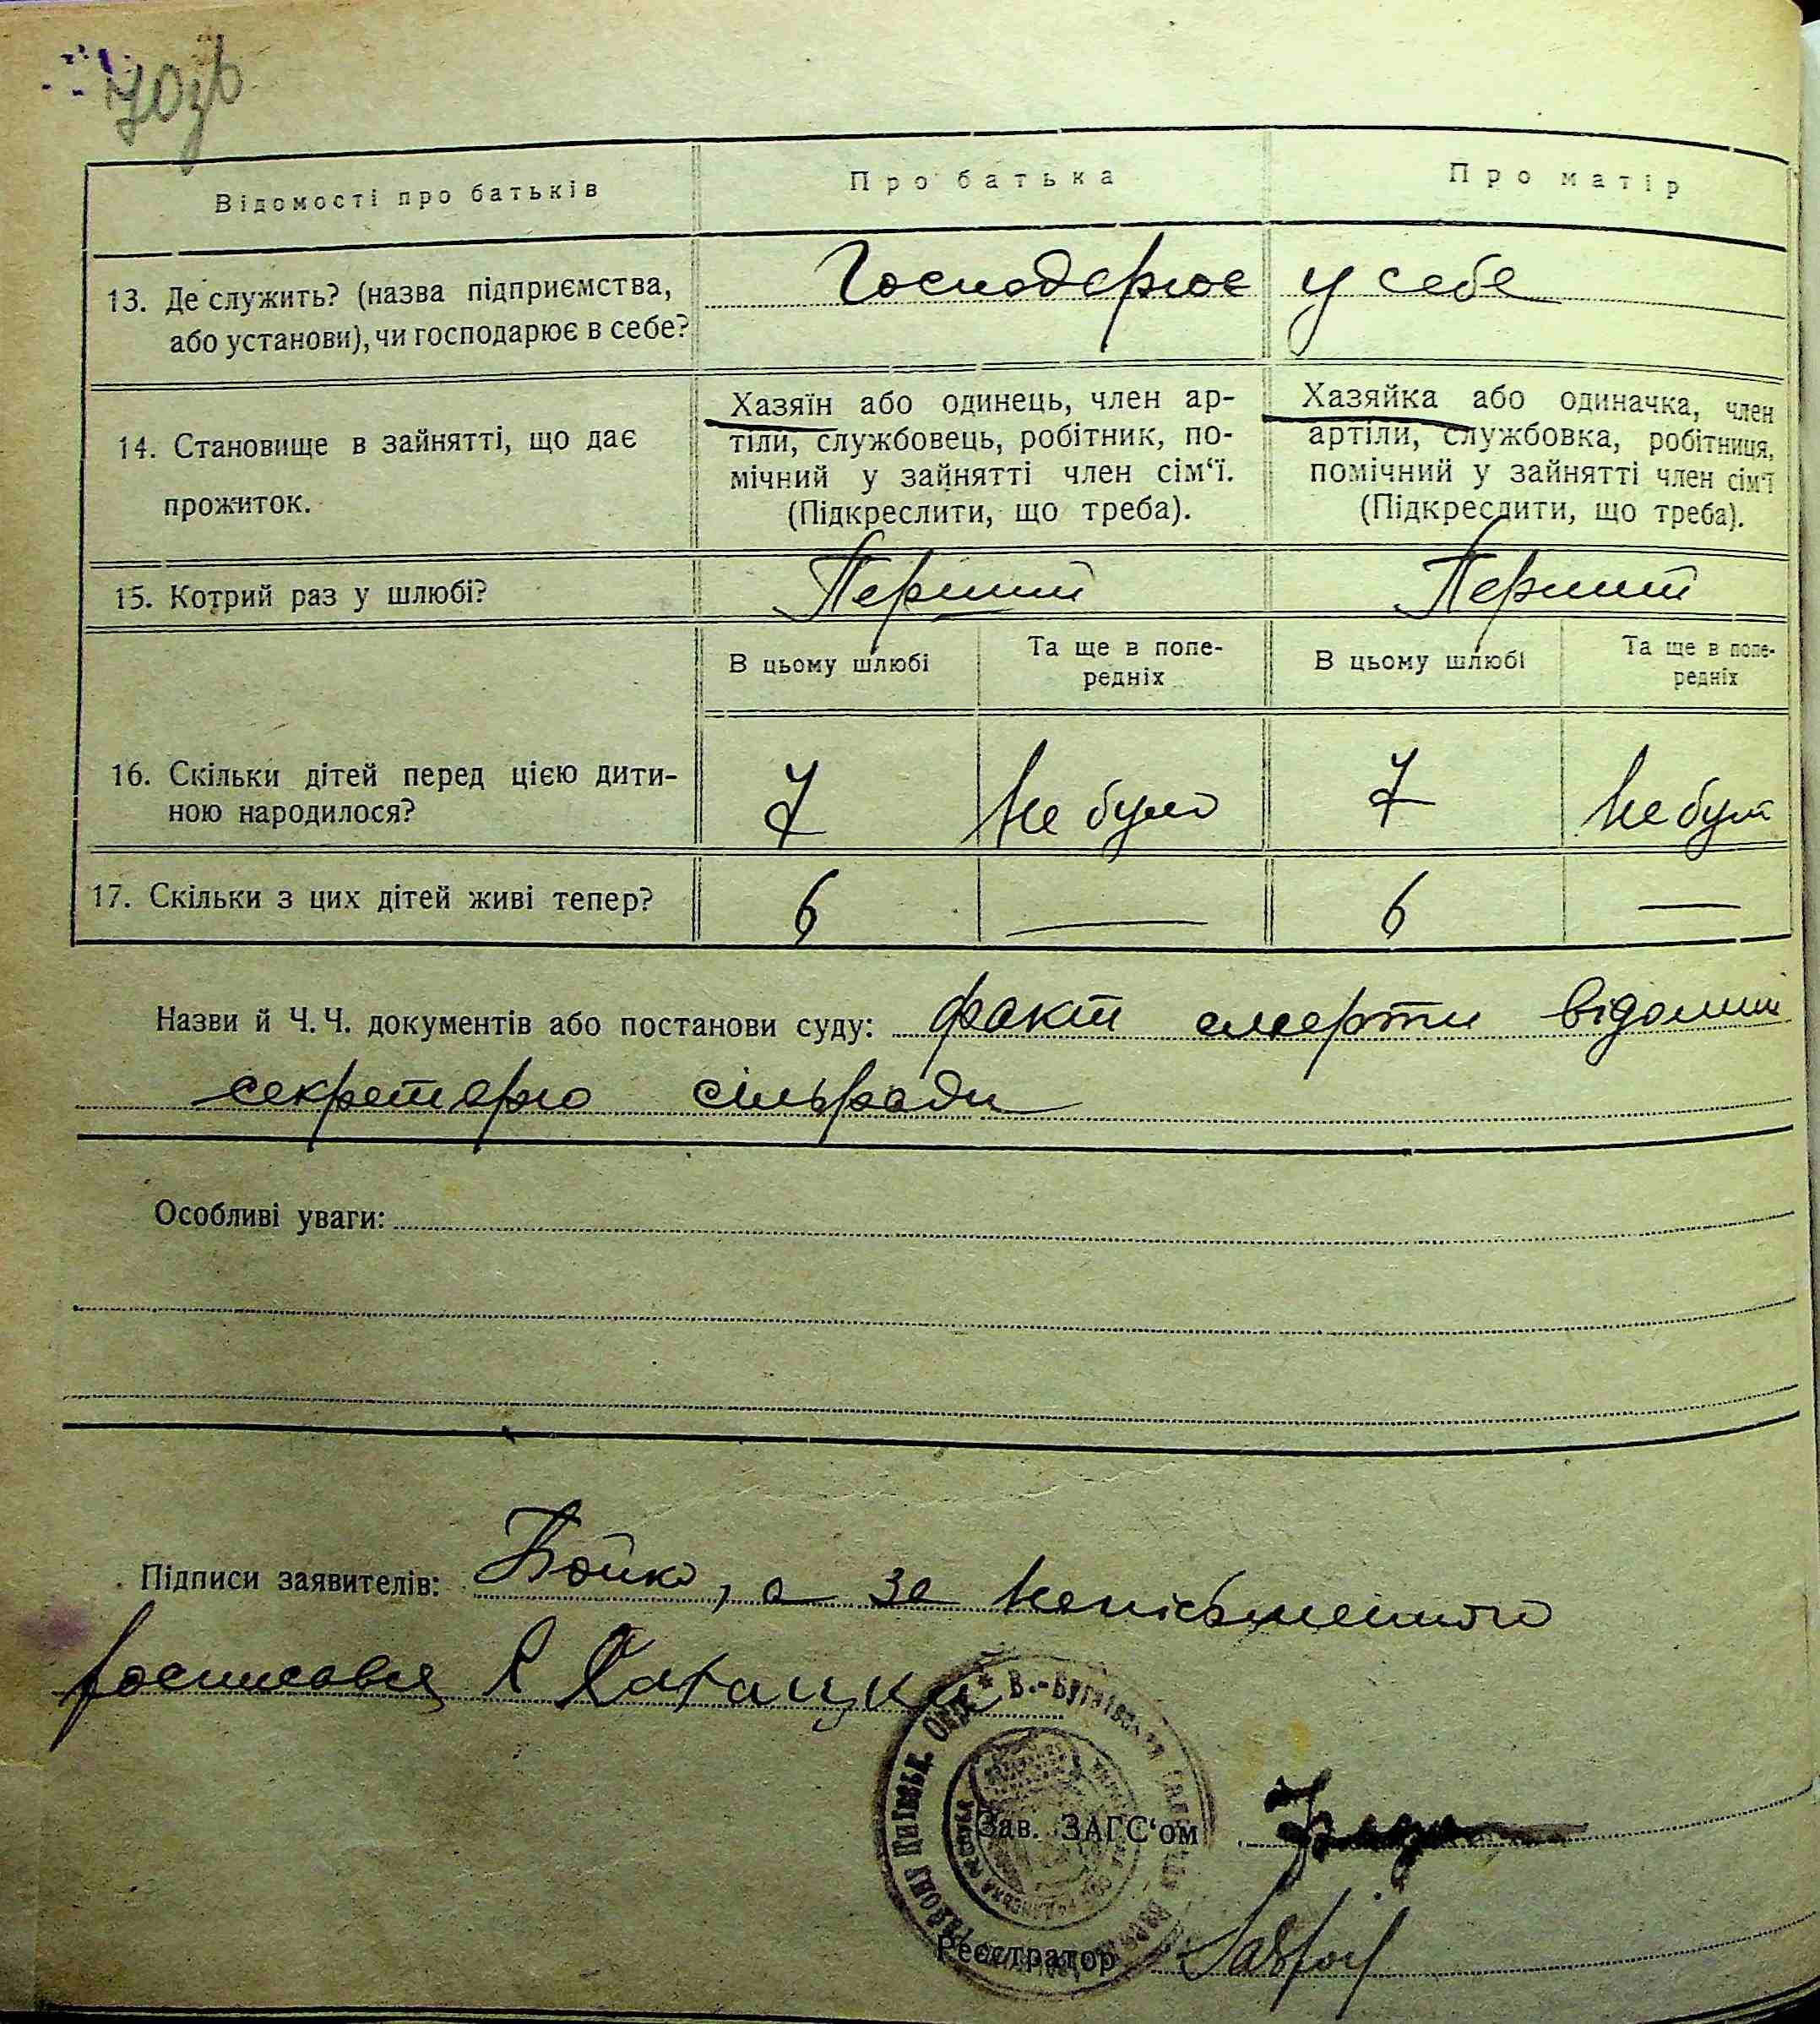 70зв
Відомості про батьків
Про батька
Про матір
13. Де служить? (назва підприємства,
або установи), чи господарює в себе?
Господарює у себе
14. Становище в зайнятті, що дає
прожиток.
Хазяїн або одинець, член ар-
тіли, службовець, робітник, по-
мічний у зайнятті член сім‘ї.
(Підкреслити, що треба).
Хазяйка або одиначка, член
артіли, службовка, робітниця,
помічний у зайнятті член сім‘ї
(Підкреслити, що треба).
15. Котрий раз у шлюбі?
Перший
Перший
В цьому шлюбі
Та ще в попе-
редніх
В цьому шлюбі
Та ще в попе-
редніх
16. Скільки дітей перед цією дити-
ною народилося?
7
не було
7
не було
17. Скільки з цих дітей живі тепер?
6
—
6
—
Назви й Ч. Ч. документів або постанови суду: факт смерти відомий
секретарю сільради
Особливі уваги:
Підписи заявителів: Бойко, а за неписьменного
росписався
В.-Бугаївська
Зав. ЗАГС‘ом
Реєстратор